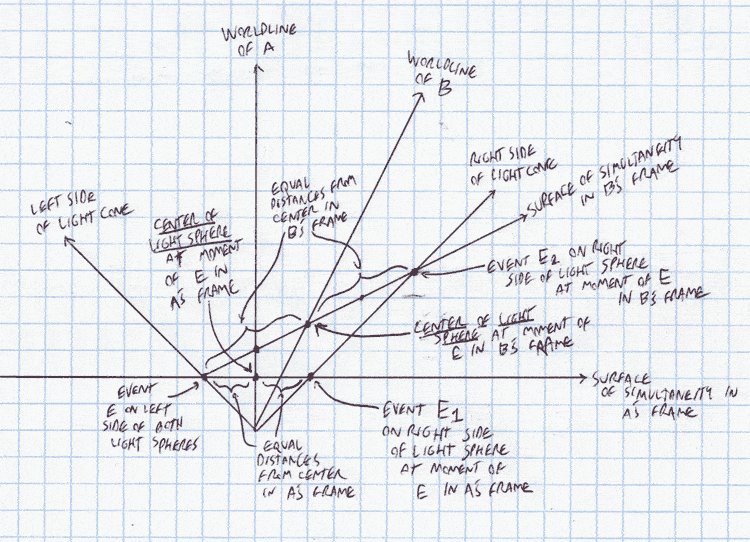 WORLDLINE
OF A
WORLDLINE
OF B
RIGHT SIDE
OF LIGHT CONE
SURFACE OF SIMULTANEITY
IN B'S FRAME
EQUAL
DISTANCES FROM
CENTER IN
B'S FRAME
LEFT SIDE
OF LIGHT CONE
CENTER OF
LIGHT SPHERE
AT MOMENT
OF E IN
A'S FRAME
EVENT E2 ON RIGHT
SIDE OF LIGHT SPHERE
AT MOMENT OF E
IN B'S FRAME
CENTER OF LIGHT
SPHERE AT MOMENT OF
E IN B'S FRAME
SURFACE
OF SIMULTANEITY IN
A'S FRAME
EVENT
E ON LEFT
SIDE OF BOTH
LIGHT SPHERES
EQUAL
DISTANCES
FROM CENTER
IN A'S FRAME
EVENT E1
ON RIGHT SIDE
OF LIGHT SPHERE
AT MOMENT OF
E IN A'S FRAME